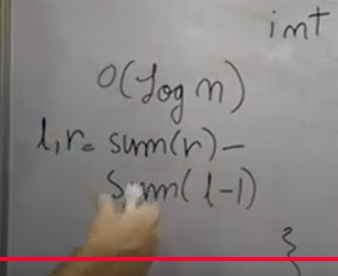 int
O(log n)
l,r= sum(r)-
sum(l-1)
}